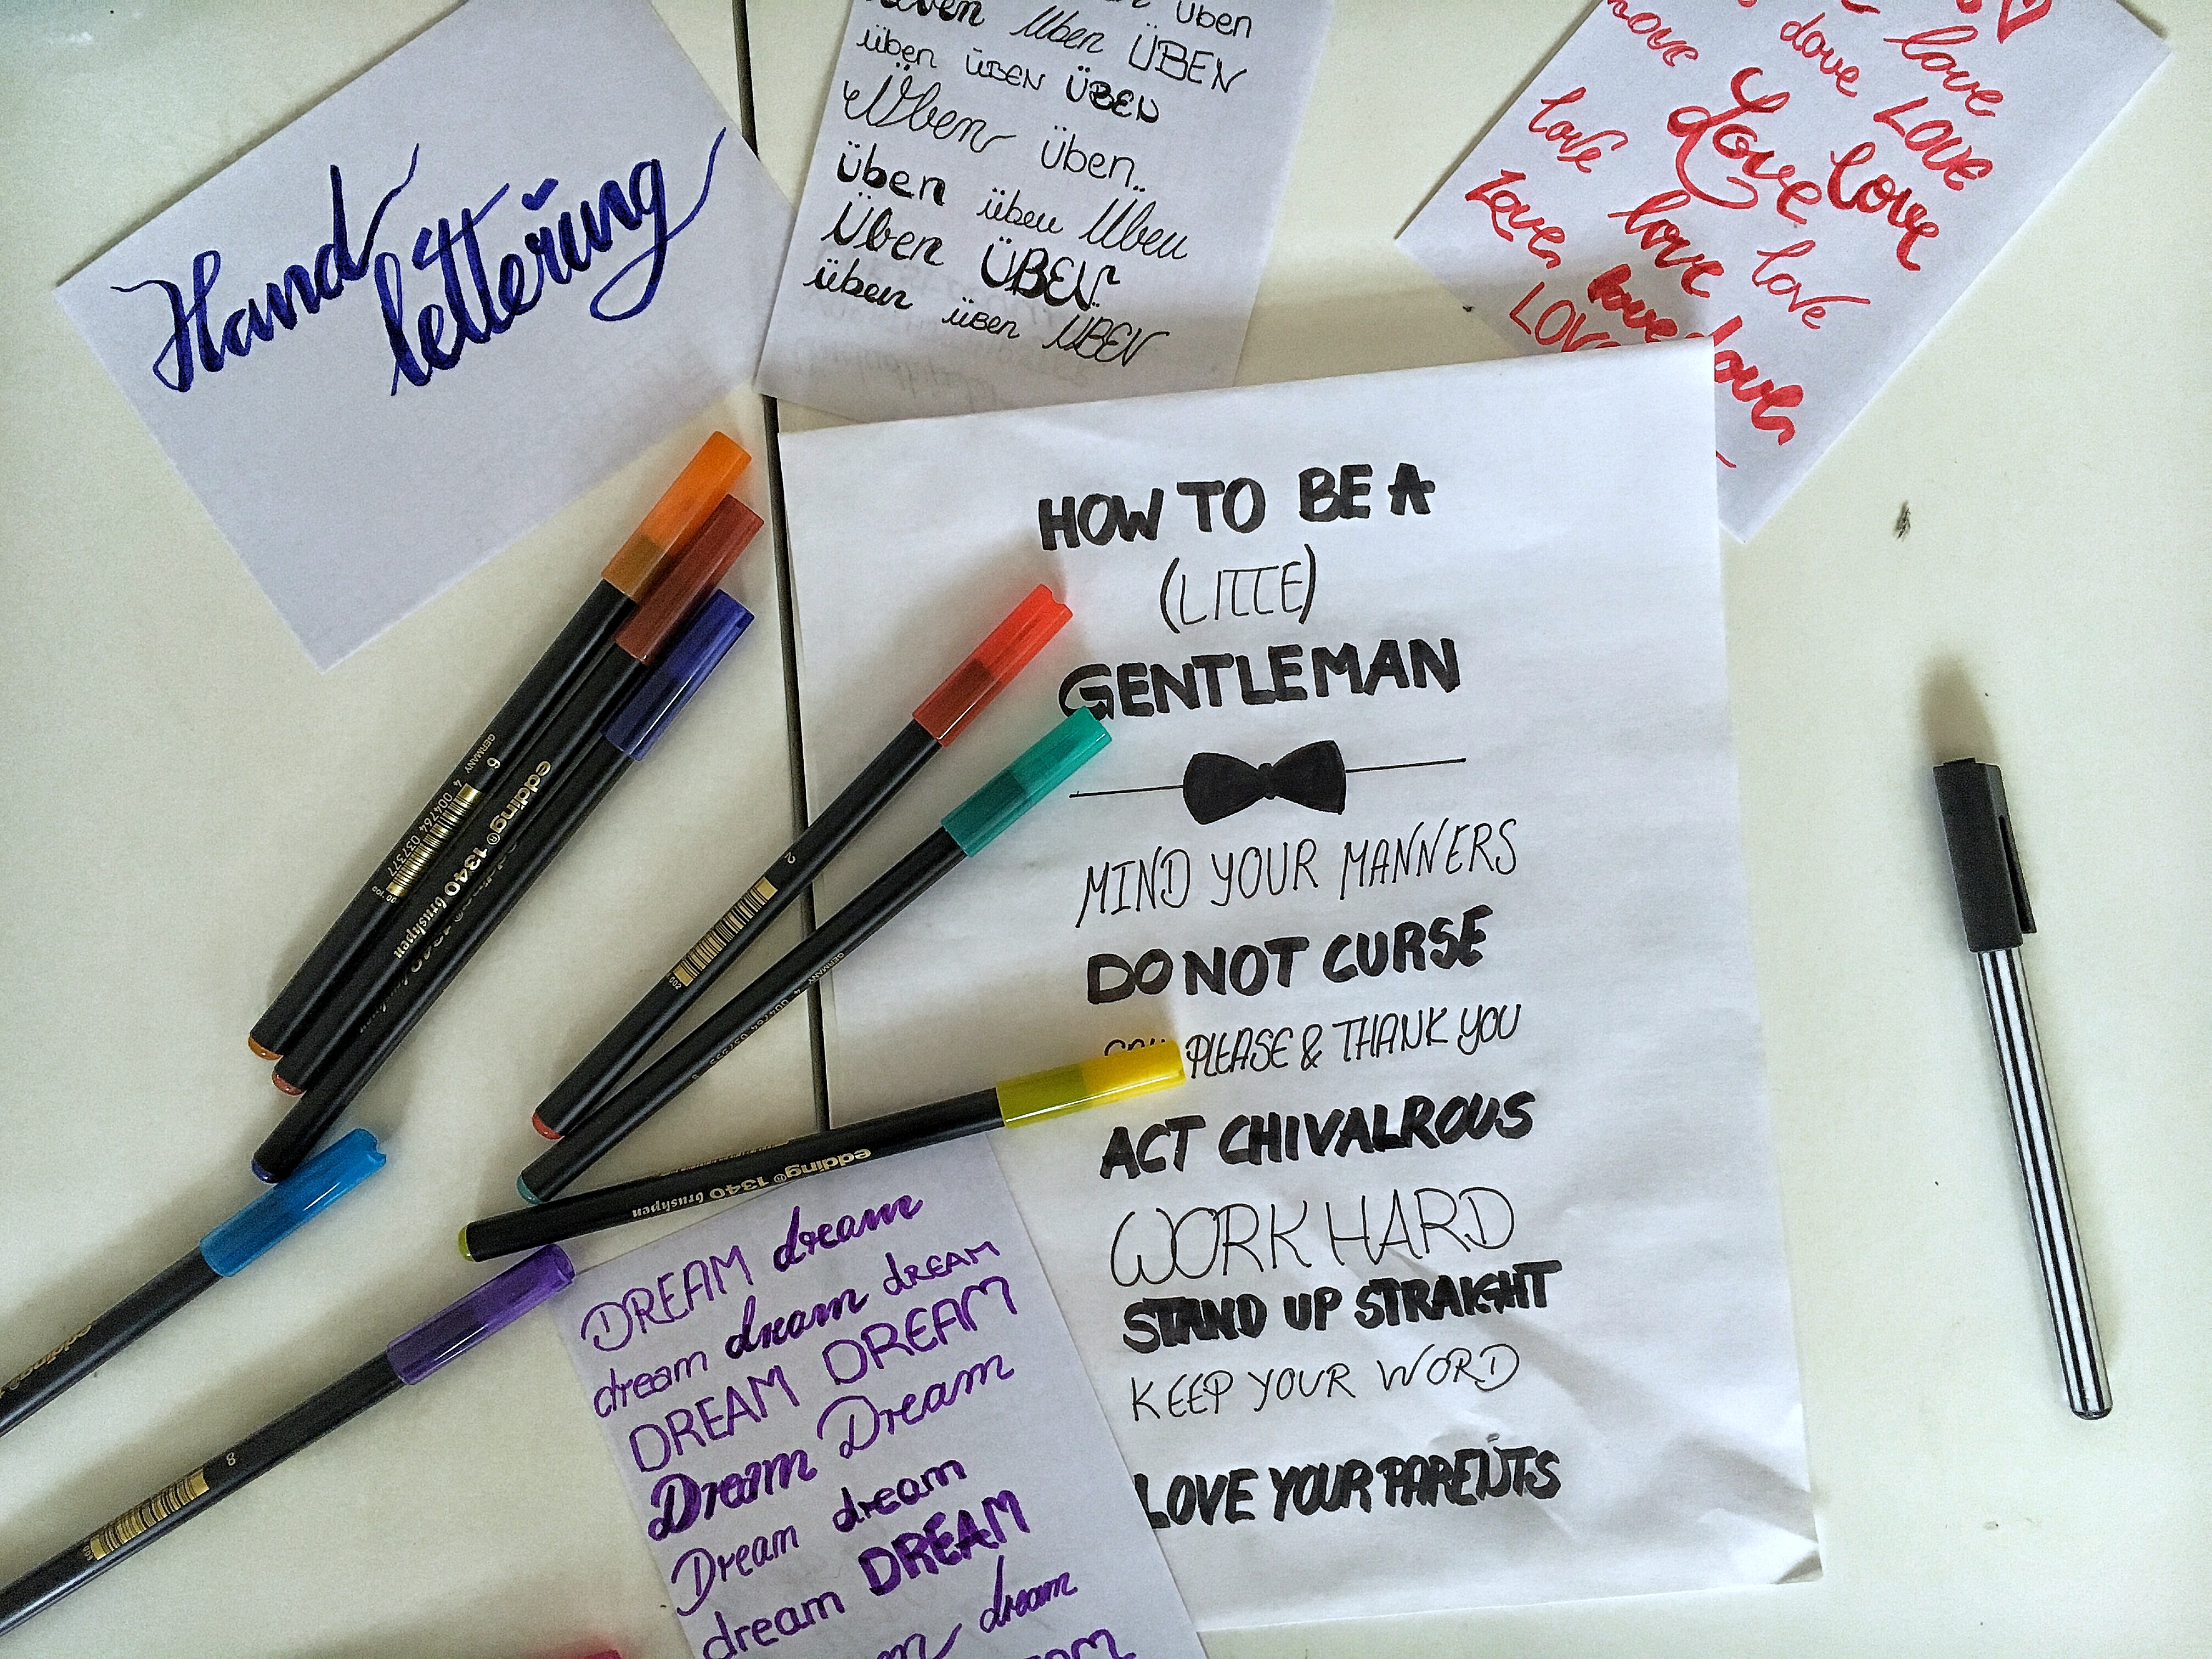 Hand
lettering
üben
üben Üben ÜBEN
üben ÜBEN ÜBEN
Üben üben
üben üben Üben
Üben ÜBEN
üben üben ÜBEN
love
love LOVE
love Love love
Love love love
love
love
HOW TO BE A
(LITTE)
GENTLEMAN
MIND YOUR MANNERS
DO NOT CURSE
PLEASE & THANK YOU
ACT CHIVALROUS
WORK HARD
STAND UP STRAIGHT
KEEP YOUR WORD
LOVE YOUR PARENTS
DREAM dream
dream dream DREAM
DREAM DREAM
Dream Dream
Dream dream
dream DREAM
dream
GERMANY 6
4 004764 037377
edding® 1340 brushpen
2
002
GERMANY
edding® 1340 brushpen
8